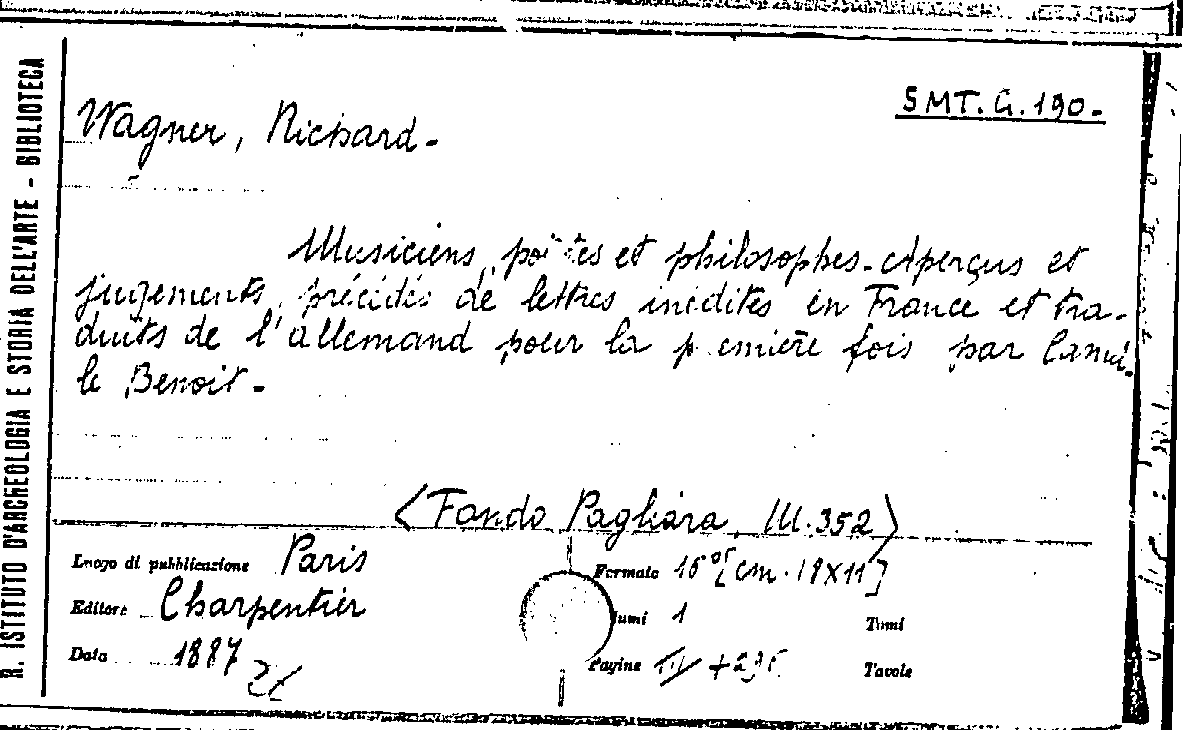 R. ISTITUTO D'ARCHEOLOGIA E STORIA DELL'ARTE - BIBLIOTECA
SMT. G. 190.
Wagner, Richard.
Musiciens, poètes et philosophes. Aperçus et
jugements, précédés de lettres inédites en France et tra-
duits de l'allemand pour la première fois par Camil-
le Benoit.
<Fondo Pagliara, III.352>
Luogo di pubblicazione Paris
Formato 16° [cm. 18X11]
Editore Charpentier
lumi 1 Tomi
Data 1887
Pagine + 295 Tavole